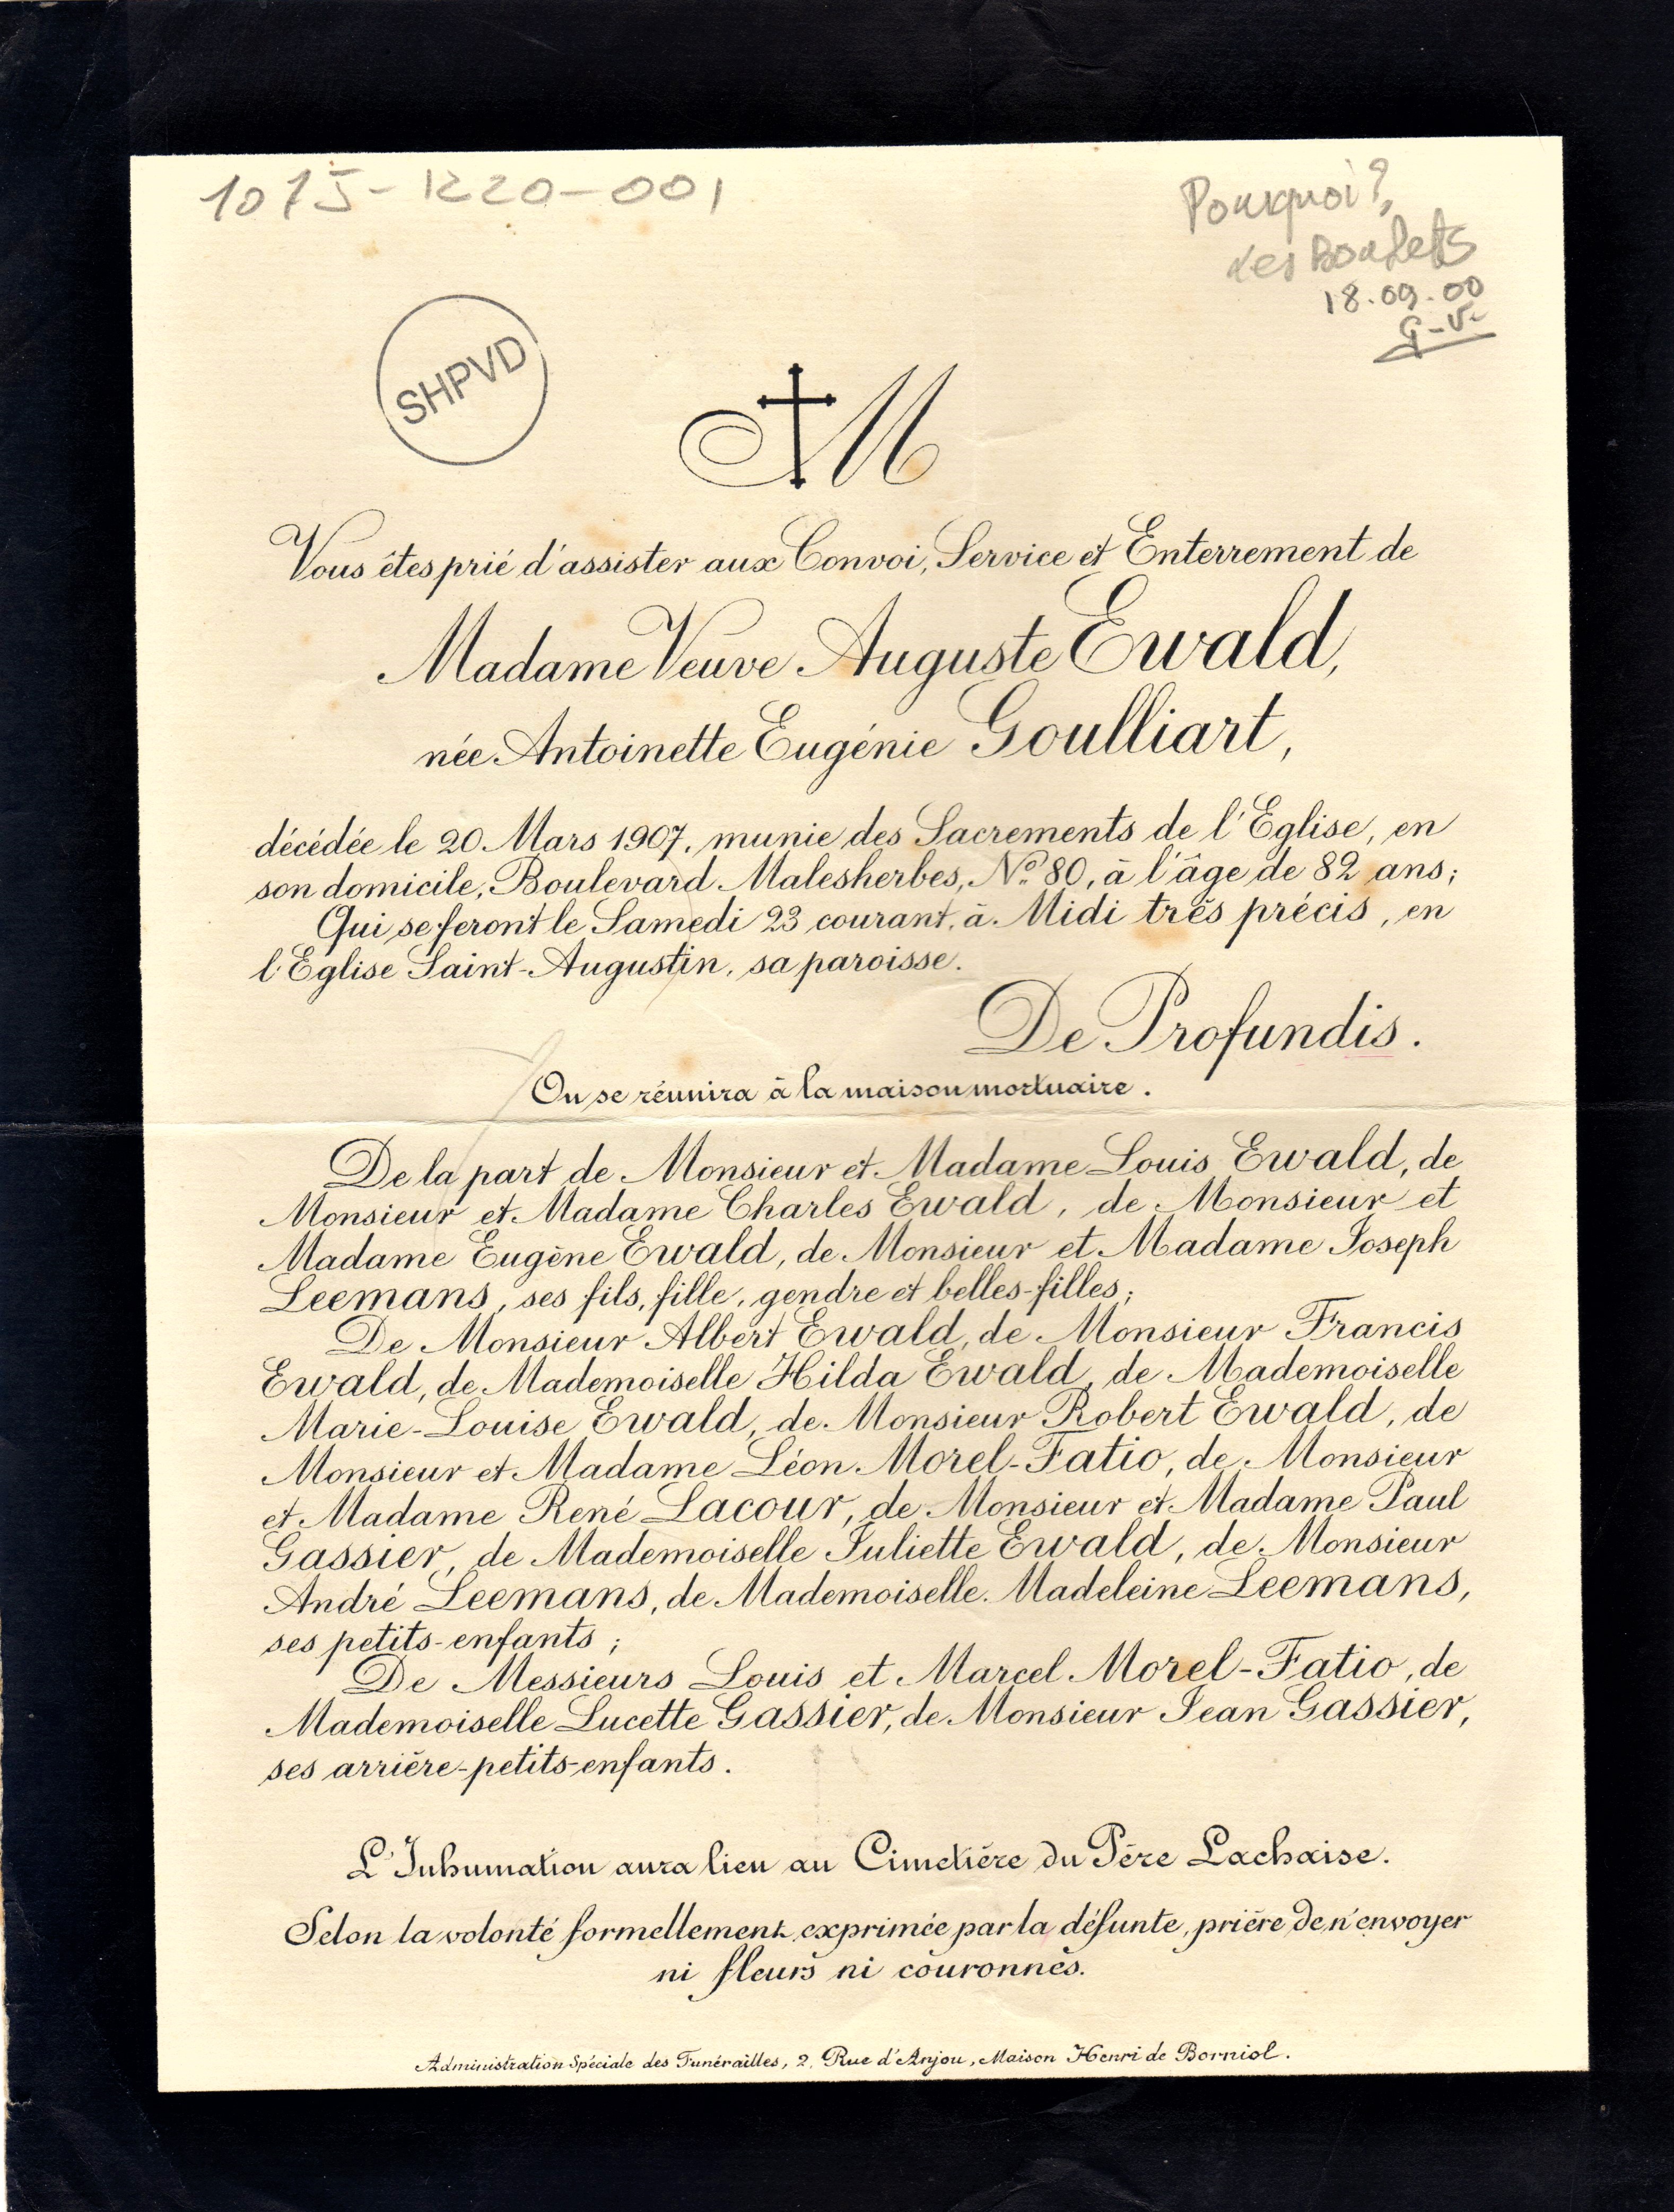 1075-1220-001
Pourquoi?,
des Boulets
18.09.00
G-V-
SHPVD
M
Vous êtes prié d'assister aux Convoi, Service et Enterrement de
Madame Veuve Auguste Ewald,
née Antoinette Eugénie Goulliart,
décédée le 20 Mars 1907, munie des Sacrements de l'Eglise, en
son domicile, Boulevard Malesherbes, Nº 80, à l'âge de 82 ans;
Qui se feront le Samedi 23 courant, à Midi très précis, en
l'Eglise Saint-Augustin, sa paroisse.
De Profundis.
On se réunira à la maison mortuaire.
De la part de Monsieur et Madame Louis Ewald, de
Monsieur et Madame Charles Ewald, de Monsieur et
Madame Eugène Ewald, de Monsieur et Madame Joseph
Leemans, ses fils, fille, gendre et belles-filles;
De Monsieur Albert Ewald, de Monsieur Francis
Ewald, de Mademoiselle Hilda Ewald, de Mademoiselle
Marie-Louise Ewald, de Monsieur Robert Ewald, de
Monsieur et Madame Léon Morel-Fatio, de Monsieur
et Madame René Lacour, de Monsieur et Madame Paul
Gassier, de Mademoiselle Juliette Ewald, de Monsieur
André Leemans, de Mademoiselle Madeleine Leemans,
ses petits-enfants;
De Messieurs Louis et Marcel Morel-Fatio, de
Mademoiselle Lucette Gassier, de Monsieur Jean Gassier,
ses arrière-petits-enfants.
L'Inhumation aura lieu au Cimetière du Père Lachaise.
Selon la volonté formellement exprimée par la défunte, prière de n'envoyer
ni fleurs ni couronnes.
Administration Spéciale des Funérailles, 2, Rue d'Anjou, Maison Henri de Borniol.